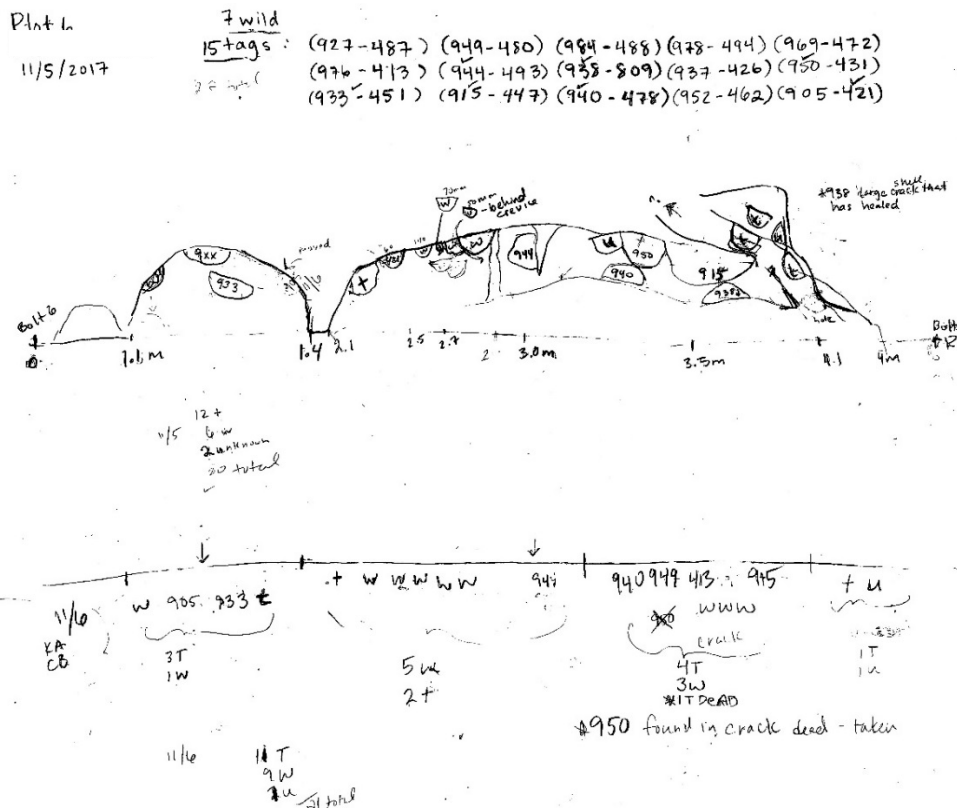 Plot 6
7 wild
11/5/2017
15 tags : (927-487) (949-480) (984-488) (978-494) (969-472)
(976-413) (944-493) (938-809) (937-426) (950-431)
(933-451) (915-447) (940-478) (952-462) (905-421)
70mm
w
behind crevice
*938 large shell crack that
has healed
9xx
933
moved
t
w
944
u
950
940
915
938
hole
Bolt 6
0
1.1m
1.4
2.1
2.5
2.7
3.0m
3.5m
4.1
4m
12 t
11/5
6 w
2 unknown
20 total
11/6
w 905 933 t
t w w w w w 944
940 949 413 915
t u
KA
CB
www
crack
3T
1W
5w
2t
4T
3W
*1T DEAD
1T
1u
*950 found in crack dead - taken
11/6
11 T
9W
1u
21 total